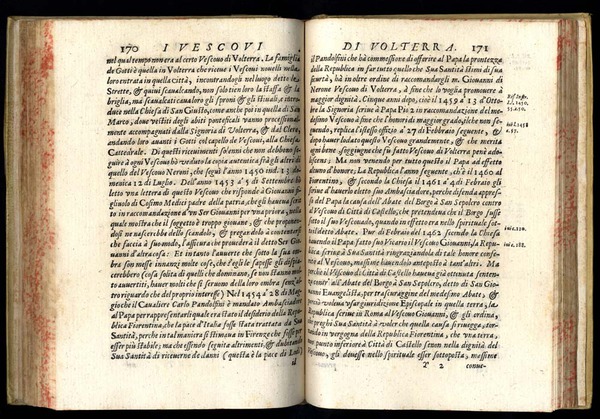 170 I VESCOVI
nel qual tempo non era al certo Vescouo di Volterra. La famiglia
de Gotti è quella in Volterra che riceue i Vescoui nouelli nella
loro entrata in quella città, incontrandogli nel luogo detto le
Strette, & quiui scaualcando, non solo tien loro la staffa & la
briglia, ma scaualcati caua loro gli sproni & gli stiuali, e intro-
duce nella Chiesa di San Giusto, come anco poi in quella di San
Marco, doue vestiti degli abiti pontificali vanno processional
mente accompagnati dalla Signoria di Volterra, & dal Clero,
andando loro auanti i Gotti col capello de Vescoui, alla Chiesa
Cattedrale. Di questi riceuimenti solenni che non debbono se-
guire à ogni Vescouo hò veduto la copia autentica frà gli altri di
quello del Vescouo Neroni, che seguì l'anno 1450 ind. 13 do-
menica 12 di Luglio. Dell'anno 1453 à 5 di Settembre hò
letto vna lettera di questo Vescouo che risponde à Giouanni fi-
gliuolo di Cosimo Medici padre della patria, che gli haueua scrit
to in raccomandazione d'vn Ser Giouanni per vna prioria, nella
quale mostra che il soggetto è troppo giouane, & che proponen-
dosi ne nascerebbe scandolo, & pregandolo à contentarsi
che faccia à suo modo, l'assicura che prouederà il detto Ser Gio
uanni d'altra cosa: Et intanto l'auuerte che sotto la sua om-
bra son messe innanzi molte cose, che s'egli le sapesse gli dispia
cerebbero (cosa solita di quelli che dominare, se non stanno mol-
to auuertiti, hauer molti che si seruono della loro ombra senz' al-
tro riguardo che del proprio interesse) Nel 1454 à 28 di Mag-
gio che il Caualiere Carlo Pandolfini è mandato Ambasciadore
al Papa per rappresentarli quale era stato il desiderio della Repu
blica Fiorentina, che la pace d'Italia fosse stata trattata da Sua
Santità, perche in tal maniera si stimaua in Firenze che fosse per
esser più stabile; ma che essendo seguita altrimenti, & dubitando
Sua Santità di riceuerne danni (questa è la pace di Lodi)
il
DI VOLTERRA. 171
il Pandolfini che hà commessione di offerire al Papa la prontezza
della Republica in far tutto quello che Sua Santità stimi di sua
sicurtà, hà in oltre ordine di raccomandargli m. Giouanni di
Nerone Vescouo di Volterra, à fine che lo voglia promouere à
maggior dignità. Cinque anni dopo, cioè il 1459 à 13 d'Otto-
bre la Signoria scriue à Papa Pio 2 in raccomandazione del me-
desimo Vescouo à fine che l'honori di maggior grado, il che non se-
guendo, replica l'istesso officio à 27 di Febbraio seguente, &
dopo hauer lodato questo Vescouo grandemente, & che merita
ogni bene, soggiunge che se fusse Vescouo di Volterra però addo-
lescente; Ma non venendo per tutto questo il Papa ad effetto
alcuno d'honore; La Republica l'anno seguente, ch'è il 1460 al
Fiorentino, & secondo la Chiesa il 1461 à 4 di Febraio gli
scriue d'hauerlo eletto suo Ambasciadore, perche difenda appres-
so del Papa la causa dell'Abate del Borgo à San Sepolcro contro
al Vescouo di Città di Castello, che pretendeua che il Borgo fusse
sotto il suo Vescouado, quando in effetto era nello spirituale sotto-
il detto Abate. Pur di Febraio del 1462 secondo la Chiesa
hauendo il Papa fatto suo Vicario il Vescouo Giouanni, la Repu-
blica scriue à Sua Santità ringraziandola di tale honore confe-
rito al Vescouo, massime hauendolo anteposto à tant'altri. Ma
perche il Vescouo di Città di Castello haueua già ottenuta senten-
za contr' all'Abate del Borgo à San Sepolcro, detto di San Gio-
uanni Euangelista, per trascuraggine del medesimo Abate, &
perciò voleua vsar giurisdizione Episcopale in quella terra, la
Republica scriue in Roma al Vescouo Giouanni, & gli ordina,
che preghi Sua Santità à voler che quella causa si riuegga, tor-
nando in vergogna della Republica Fiorentina, che vna terra,
in vn punto inferiore à Città di Castello senon nella dignità del
Vescouo, gli douesse nello spirituale esser sottoposta, massime
Y 2 conue-